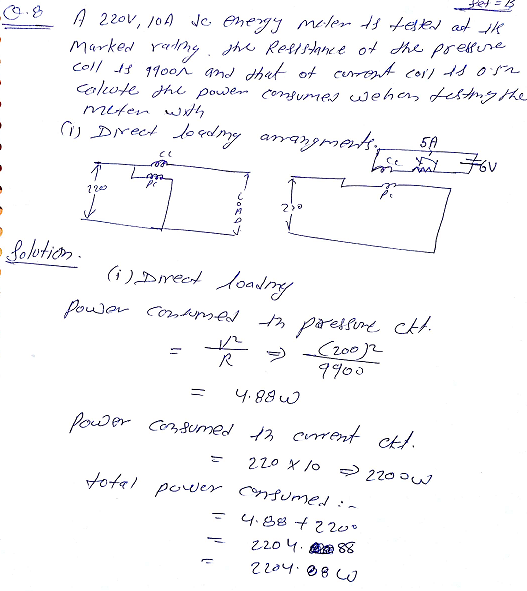 Set = B
Q.8 A 220V, 10A dc energy meter is tested at its
Marked rating. The Resistance of the pressure
coil is 9900Ω and that of current coil is 0.5Ω
calcute the power consumed when testing the
meter with
(i) Direct loading arrangments.
5A
CC
CC
6V
PC
PC
220
LOAD
220
Solution.
(i) Direct loading
Power consumed in pressure ckt.
= V²/R ⇒ (200)²/9900
= 4.88W
Power consumed in current ckt.
= 220 X 10 ⇒ 2200W
total power consumed :-
= 4.88 + 2200
= 2204.88
= 2204.88 W